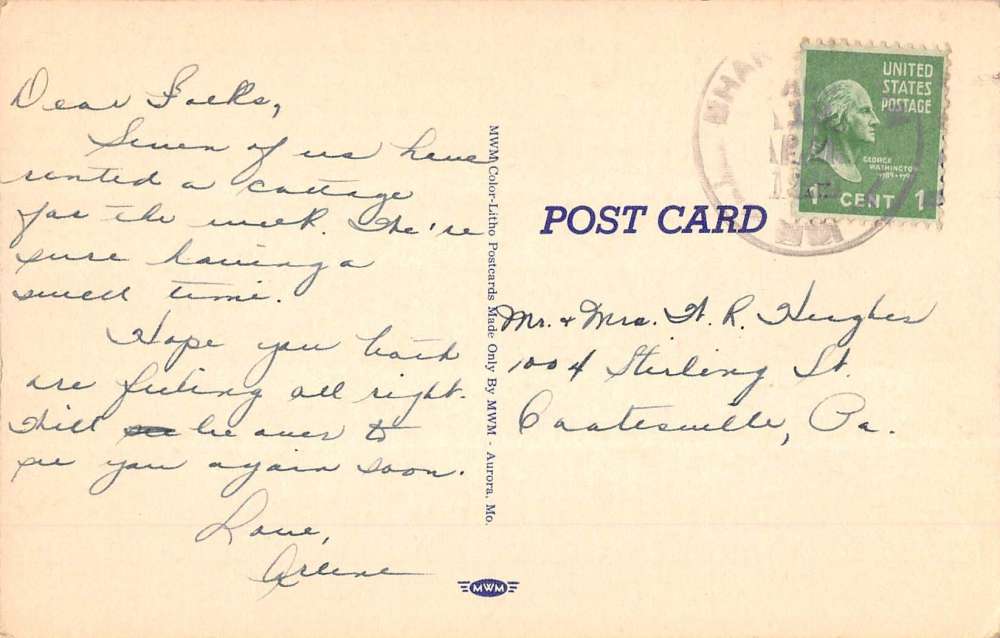 Dear Folks,
Seven of us have
rented a cottage
for the week. We're
sure having a
swell time.
Hope you both
are feeling all right.
Will be over to
see you again soon.
Love,
Arlene
MWM Color-Litho Postcards Made Only By MWM - Aurora, Mo.
POST CARD
UNITED
STATES
POSTAGE
GEORGE
WASHINGTON
1 CENT 1
Mr. + Mrs. W. R. Hughes
1004 Stirling St.
Coatesville, Pa.
MWM